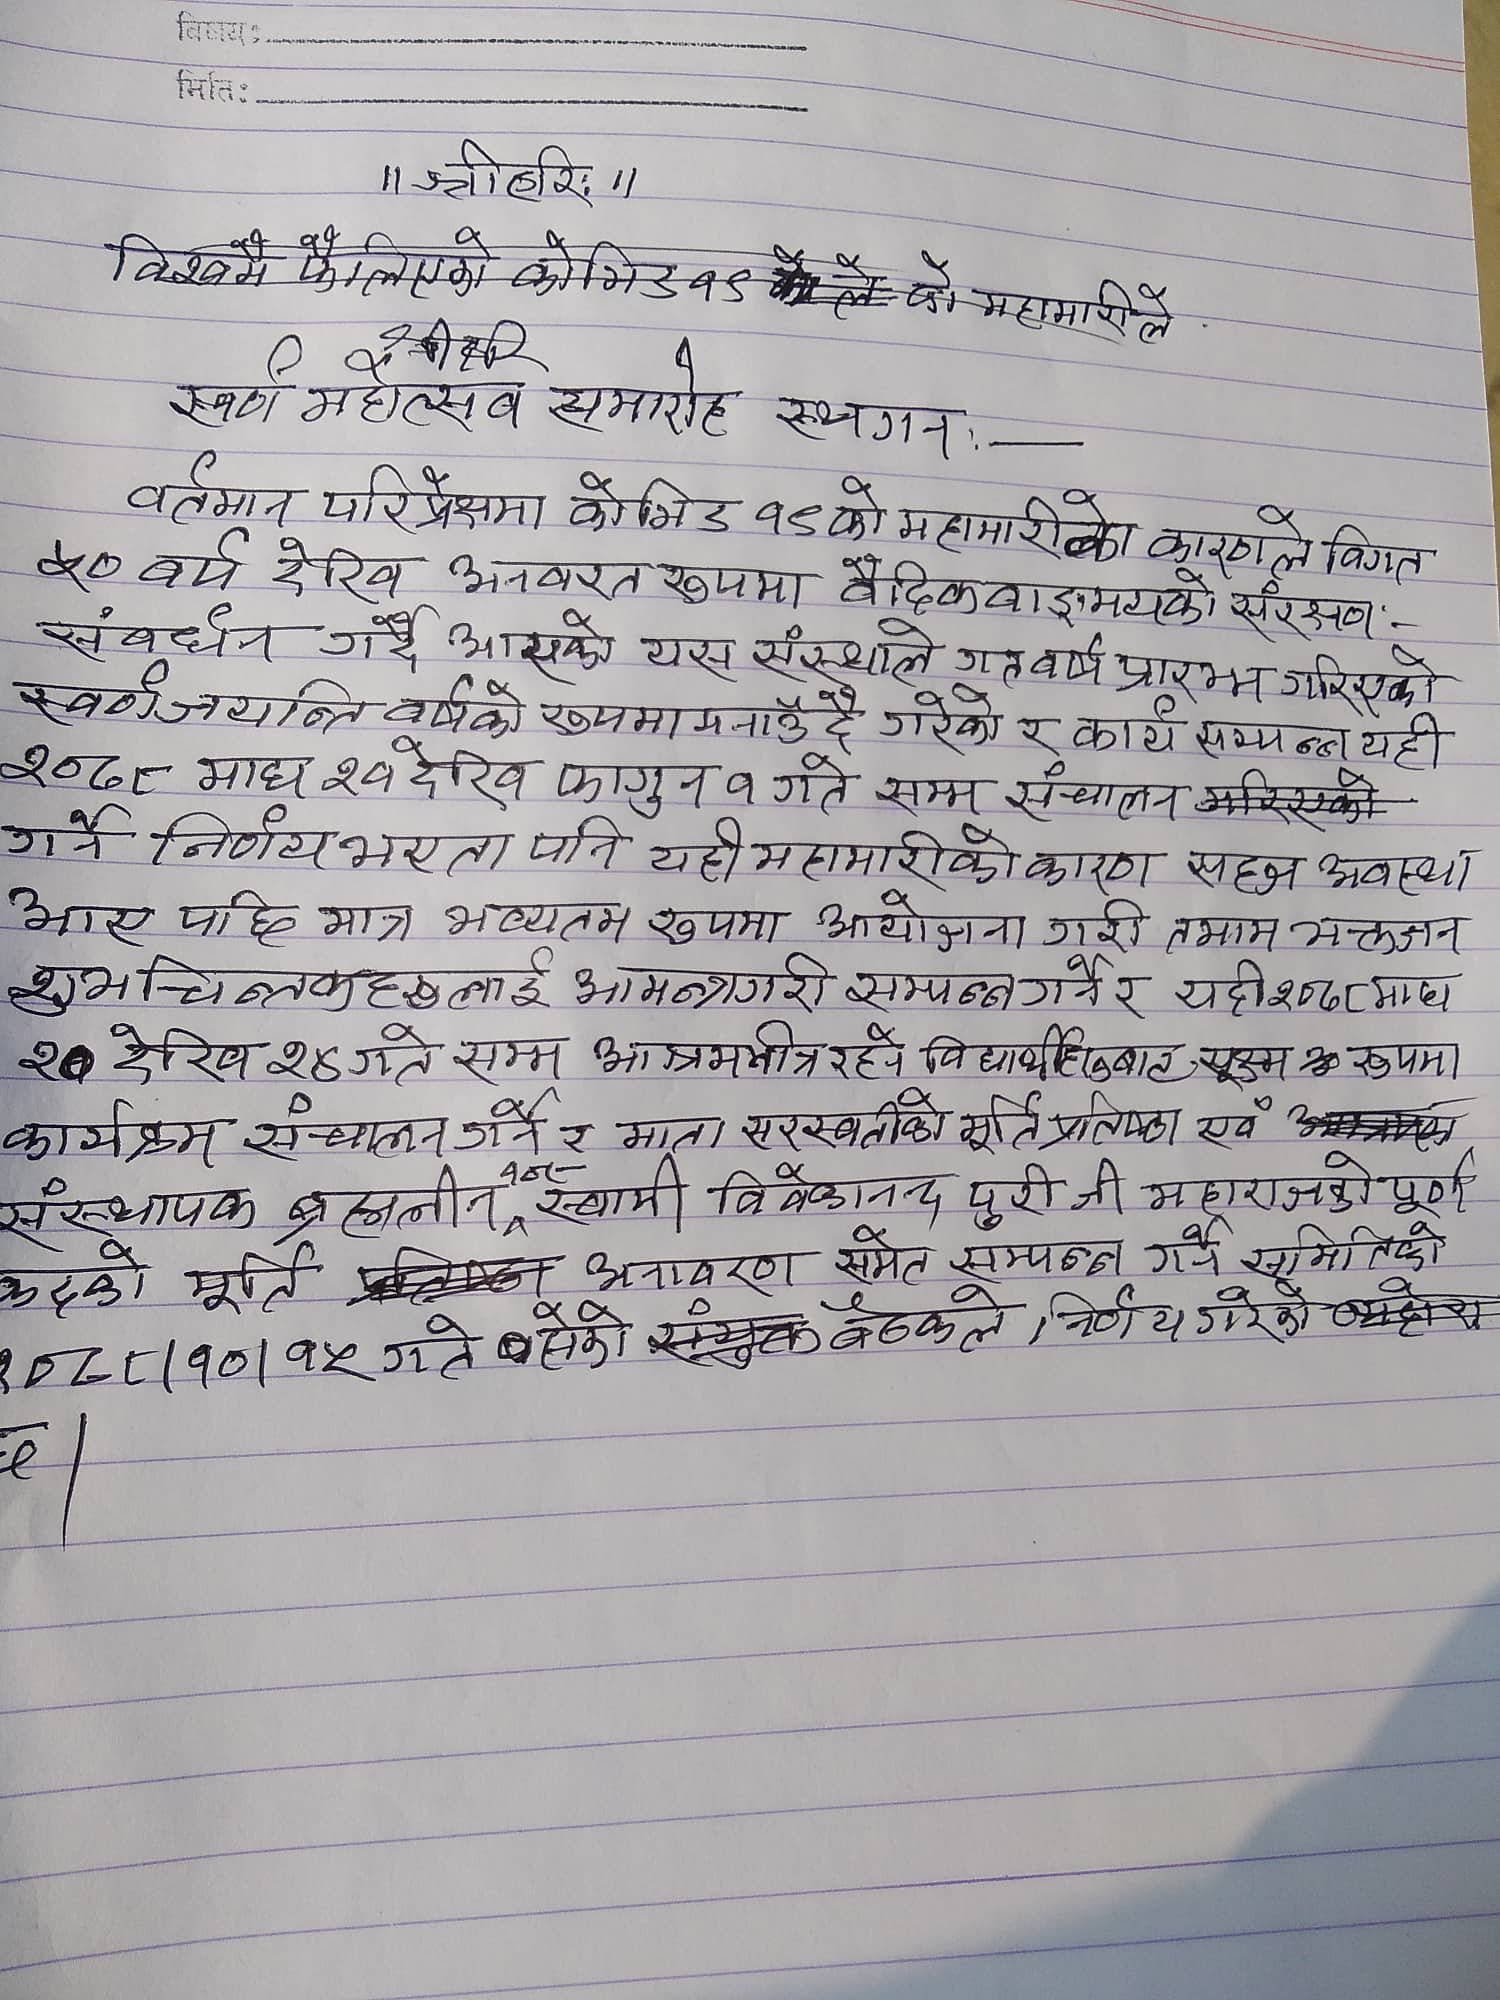 विषय:
मिति:
॥ श्रीहरि: ॥
विश्वमै फैलिएको कोभिड १९ ले को महामारीले
श्रीहरि
स्वर्ण महोत्सव समारोह स्थगन:—
वर्तमान परिप्रेक्षमा कोभिड १९को महामारीको कारणले विगत
५० वर्ष देखि अनवरत रुपमा वैदिकवाङ्मयको संरक्षण:-
संवर्धन गर्दै आएको यस संस्थाले गतवर्ष प्रारम्भ गरिएको
स्वर्णजयन्ति वर्षको रुपमा मनाउँदै गरेको र कार्य सम्पन्न यही
२०७८ माघ २७देखि फागुन १ गते सम्म संचालन गरिएको
गर्ने निर्णय भएता पनि यही महामारीको कारण सहज अवस्था
आए पछि मात्र भव्यतम रुपमा आयोजना गरी तमाम भक्तजन
शुभचिन्तकहरुलाई आमन्त्रगरी सम्पन्न गर्ने र यही २०७८ माघ
२० देखि २४गते सम्म आश्रमभीत्र रहने विद्यार्थीहरुबाट सूक्ष्म रुपमा
कार्यक्रम संचालन गर्ने र माता सरस्वतीको मूर्ति प्रतिष्ठा एवं
संस्थापक ब्रह्मलीन १०८ स्वामी विवेकानन्द पुरी जी महाराजको पूर्ण
कदको मूर्ति प्रतिष्ठा अनावरण समेत सम्पन्न गर्ने समितिको
२०७८।१०।१५ गते बसेको संयुक्त बैठकले निर्णय गरेको
छ।